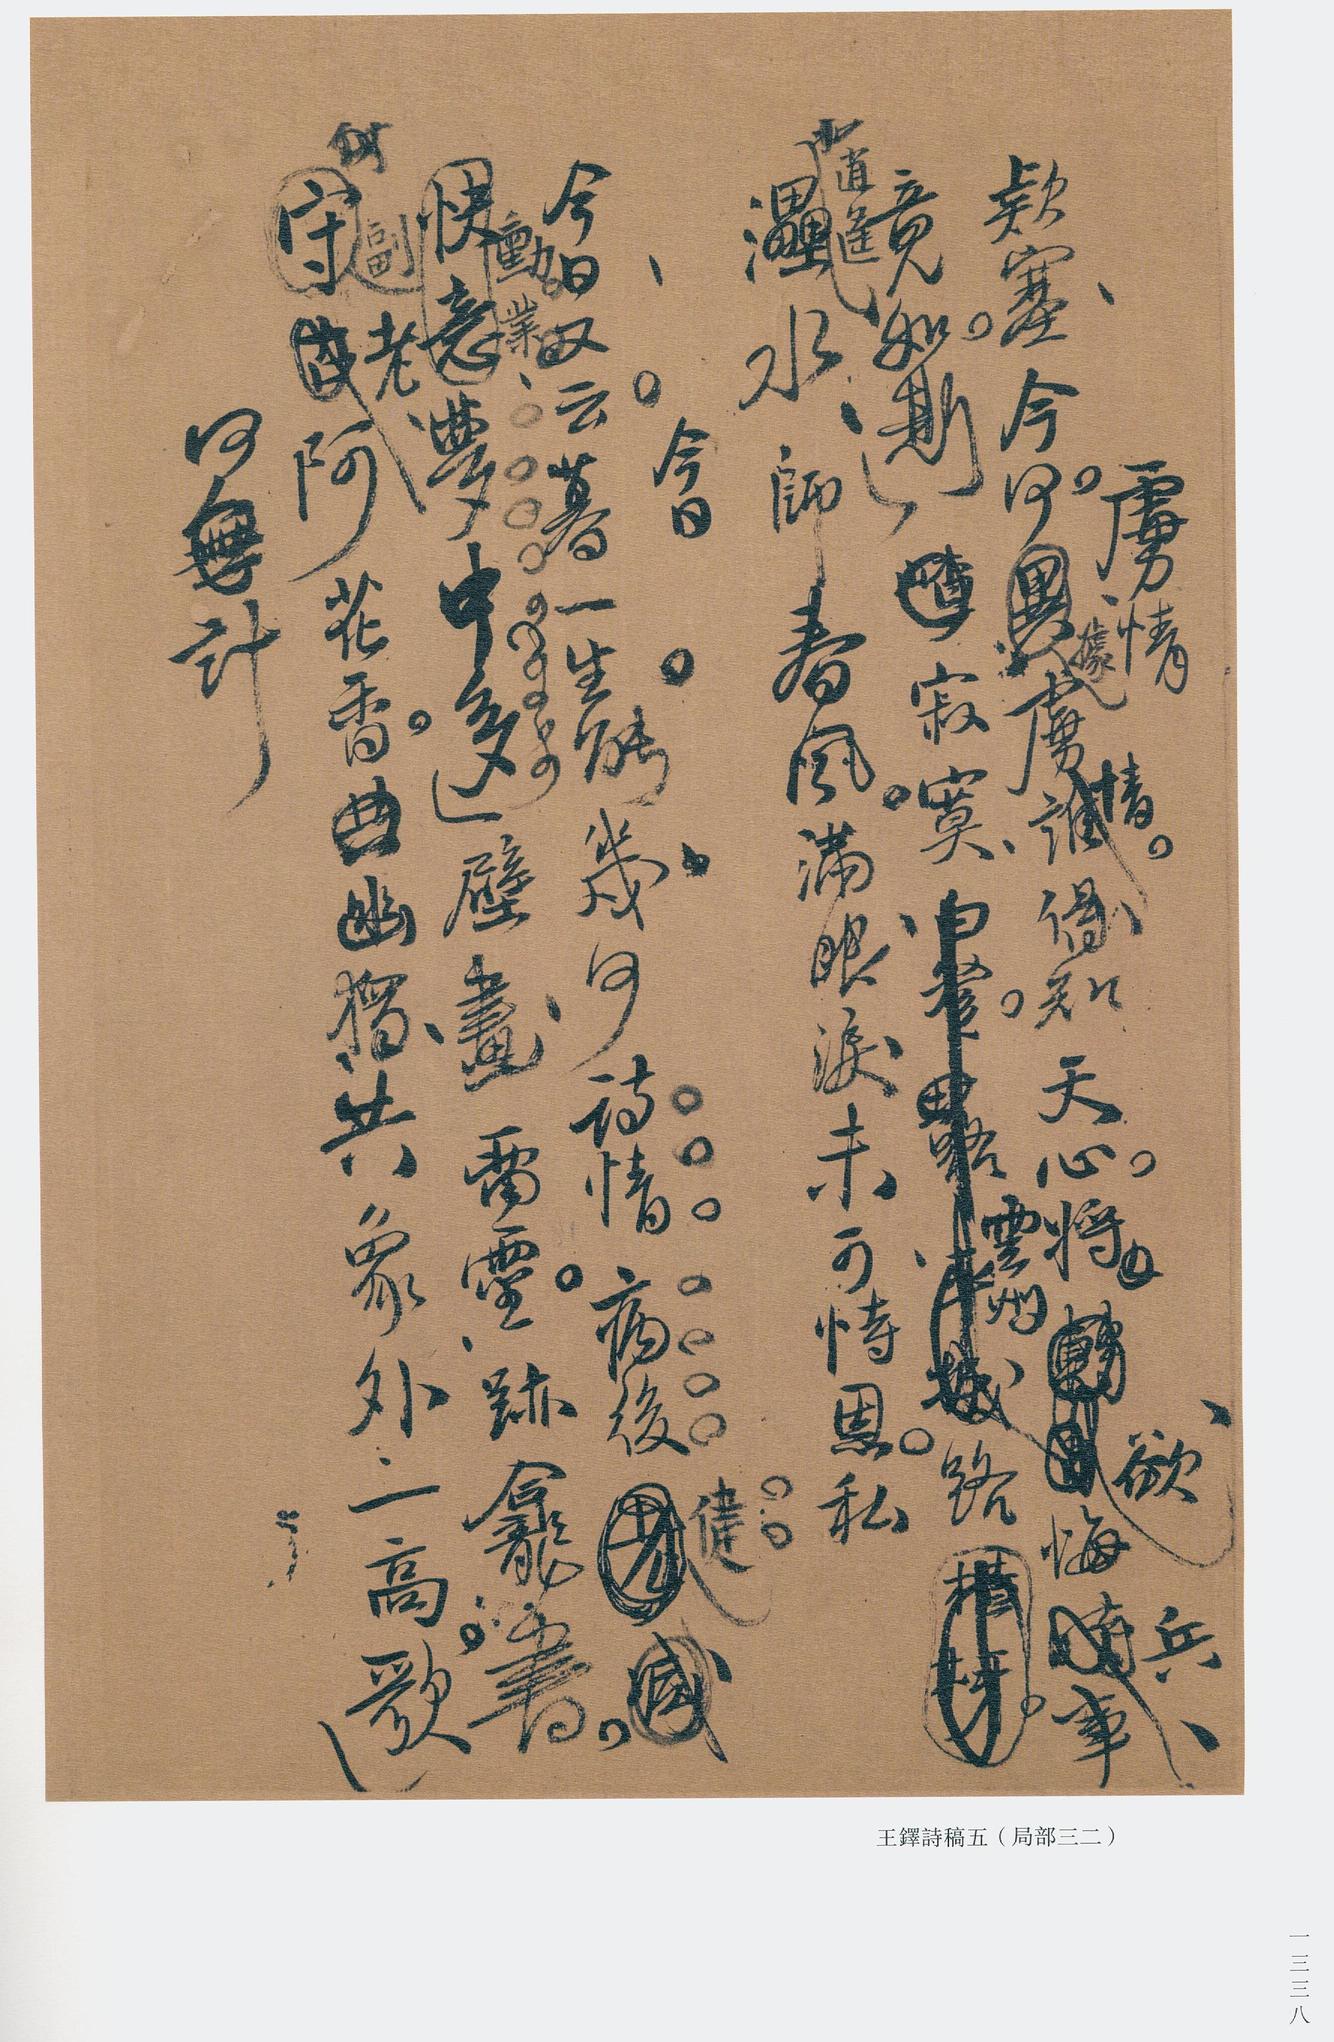 虜情
款塞今何異虜情誰得知天心將轉欲悔兵事
據
竟如斯寂寞
雲
路
逍遙
水師春風滿眼淚未可恃恩私
今日
今日又云暮一生能幾何詩情病後健減
勳業
快意夢中多壁畫雷靈跡龕書
副老
守阿花香曲幽獨共象外一高歌
何無計
王鐸詩稿五（局部三二）
一三三八